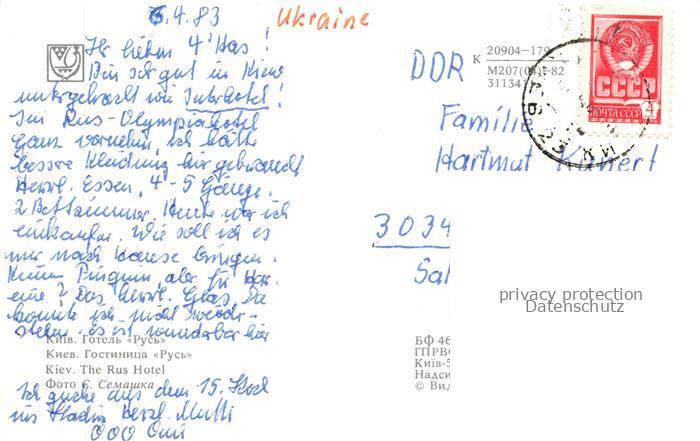 6.4.83
Ukraine
Ihr lieben 4 !
Bin sehr gut in Kiew
untergebracht wie Interhotel!
Im Rus-Olympiahotel
ganz vornehm, ich hätte
bessere Kleidung hier gebraucht
Herrl. Essen, 4-5 Gänge.
2 Bettzimmer. Heute war ich
einkaufen. Wie soll ich es
nur nach Hause bringen.
Keinen Pinguin aber für
eine 2 Das herrl. Glas, da
konnte ich nicht wieder-
stehen. Es ist wunderbar hier
Київ. Готель «Русь»
Киев. Гостиница «Русь»
Kiev. The Rus Hotel
Фото С. Семашка
Ich gucke aus dem 15. Stock
ins Stadion herzl. Mutti
OOO Omi
К 20904-179
М207(04)-82
311341
DDR
СССР
ПОЧТА СССР
4
Familie
Hartmut
3034
Sal
privacy protection
Datenschutz
БФ 46
ГПРВО
Київ-5
Надси
© Вид